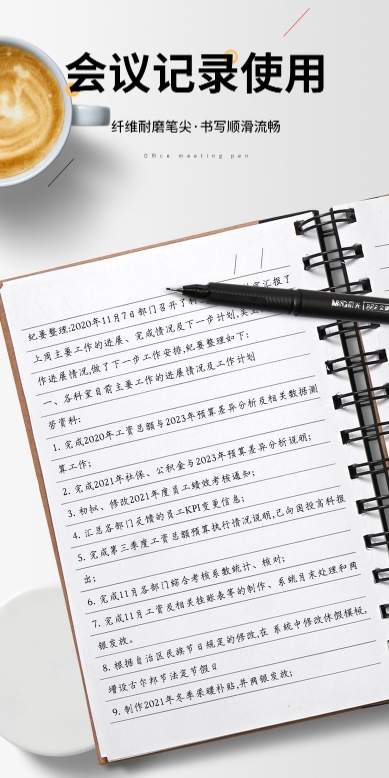 会议记录使用
纤维耐磨笔尖·书写顺滑流畅
Office meeting pen
M&G晨光
纪要整理:2020年11月7日部门召开了 汇报了
上周主要工作的进展、完成情况及下一步计划,
作进展情况,做了下一步工作安排,纪要整理如下:
一、各科室目前主要工作的进展情况及工作计划
劳资科:
1. 完成2020年工资总额与2023年预算差异分析及相关数据测
算工作;
2. 完成2021年社保、公积金与2023年预算差异分析说明;
3. 初拟、修改2021年度员工绩效考核通知;
4. 汇总各部门反馈的员工KPI变更信息;
5. 完成第三季度工资总额预算执行情况说明,已向国投高科报
出;
6. 完成11月各部门综合考核系数统计、核对;
7. 完成11月工资及相关挂账表等的制作、系统月末处理和网
银发放。
8. 根据自治区民族节日规定的修改,在 系统中修改休假模板,
增设古尔邦节法定节假日
9. 制作2021年冬季采暖补贴,并网银发放;